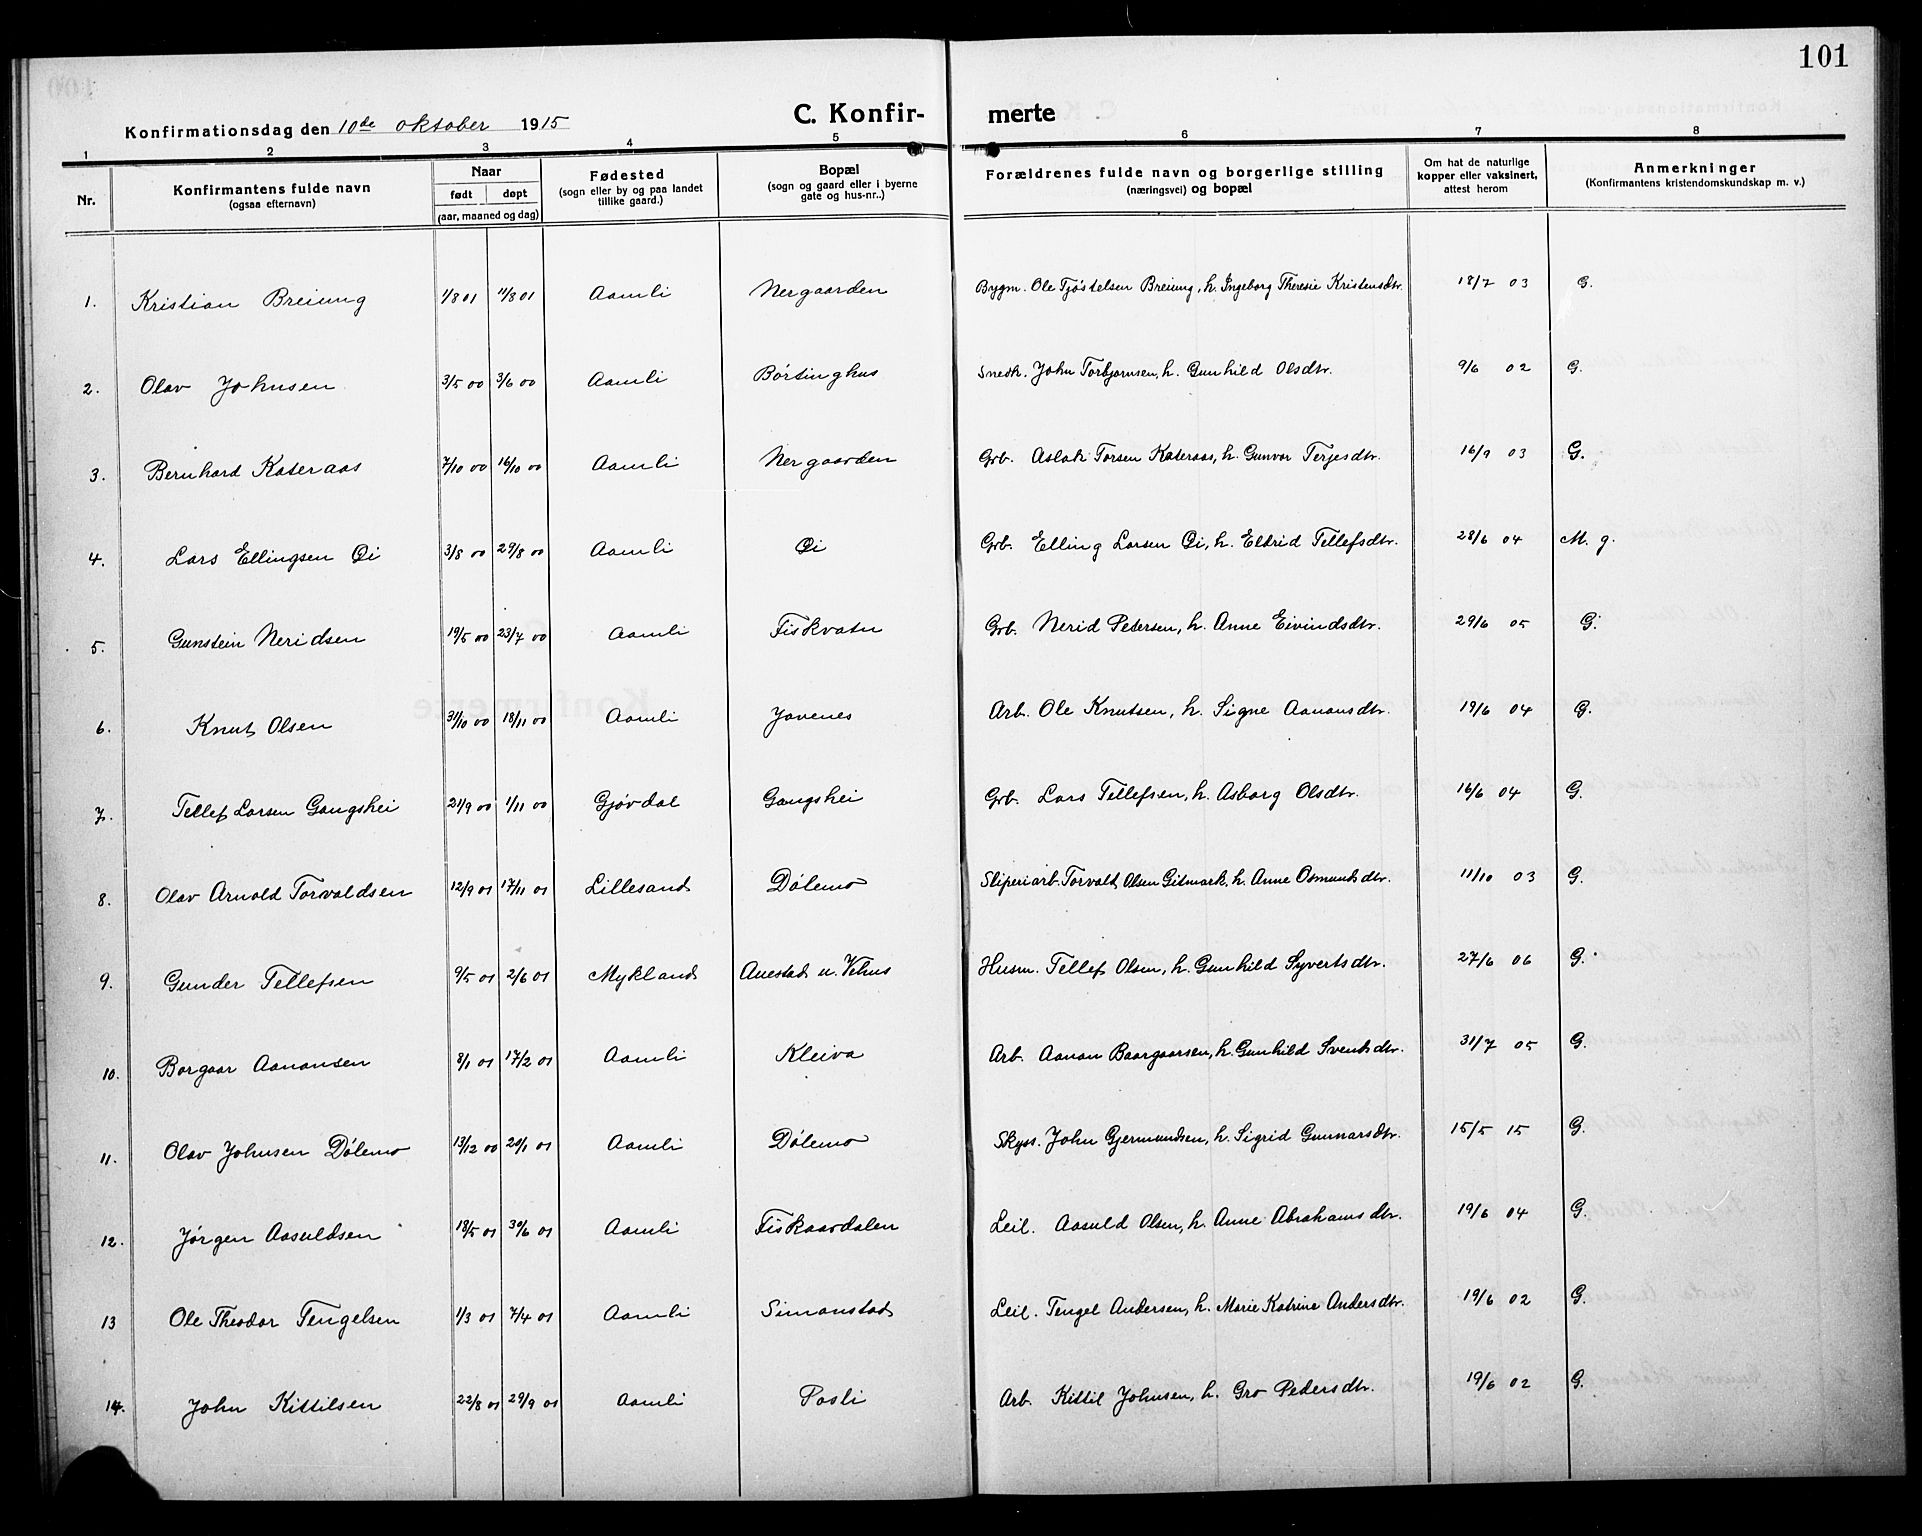 101
Konfirmationsdag den 10de oktober 1915
C. Konfir- merte
1 2 3 4 5 6 7 8
Nr. Konfirmantens fulde navn (ogsaa efternavn) Naar født døpt (aar, maaned og dag) Fødested (sogn eller by og paa landet tillike gaard.) Bopæl (sogn og gaard eller i byerne gate og hus-nr..) Forældrenes fulde navn og borgerlige stilling (næringsvei) og bopæl Om hat de naturlige kopper eller vaksinert, attest herom Anmerkninger (Konfirmantens kristendomskundskap m. v.)
1. Kristian Breiung 1/8 01 11/8 01 Aamli Nergaarden Bygm. Ole Tjøstelsen Breiung, h. Ingeborg Theresie Kristensdtr. 18/7 03 G.
2. Olav Johnsen 3/5 00 3/6 00 Aamli Børtinghus Snedk. John Torbjørnsen, h. Gunhild Olsdtr. 9/6 02 G.
3. Bernhard Kateraas 7/10 00 16/10 00 Aamli Nergaarden Grb. Aslak Torsen Kateraas, h. Gunvor Terjesdtr. 16/9 03 G.
4. Lars Ellingsen Øi 3/8 00 29/8 00 Aamli Øi Grb. Elling Larsen Øi, h. Eldrid Tellefsdtr. 28/6 04 M. g.
5. Gunstein Neridsen 19/5 00 23/7 00 Aamli Fiskvatn Grb. Nerid Petersen, h. Anne Eivindsdtr. 29/6 05 G.
6. Knut Olsen 31/10 00 18/11 00 Aamli Jovenes Arb. Ole Knutsen, h. Signe Aanonsdtr. 19/6 04 G.
7. Tellef Larsen Gangshei 21/9 00 1/11 00 Gjøvdal Gangshei Grb. Lars Tellefsen, h. Asborg Olsdtr. 16/6 04 G.
8. Olav Arnold Torvaldsen 12/9 01 17/11 01 Lillesand Dølemo Sliperiarb. Torvald Olsen Gitmark, h. Anne Osmundsdtr. 11/10 03 G.
9. Gunder Tellefsen 9/5 01 2/6 01 Mykland Auestad u. Vehus Husm. Tellef Olsen, h. Gunhild Syvertsdtr. 27/6 06 G.
10. Borgaar Aanonsen 8/1 01 17/2 01 Aamli Kleiva Arb. Aanon Baargaarsen, h. Gunhild Svendsdtr. 31/7 05 G.
11. Olav Johnsen Dølemo 13/12 00 20/1 01 Aamli Dølemo Skyss. John Gjermundsen, h. Sigrid Gunnarsdtr. 15/5 15 G.
12. Jørgen Aasuldsen 18/5 01 30/6 01 Aamli Fiskaardalen Leil. Aasuld Olsen, h. Anne Abrahamsdtr. 19/6 04 G.
13 Ole Theodor Tengelsen 1/3 01 7/4 01 Aamli Simonstad Leil. Tengel Andersen, h. Marie Katrine Andersdtr. 19/6 02 G.
14. John Kittilsen 22/8 01 29/9 01 Aamli Posli Arb. Kittil Johnsen, h. Gro Pedersdtr. 19/6 02 G.